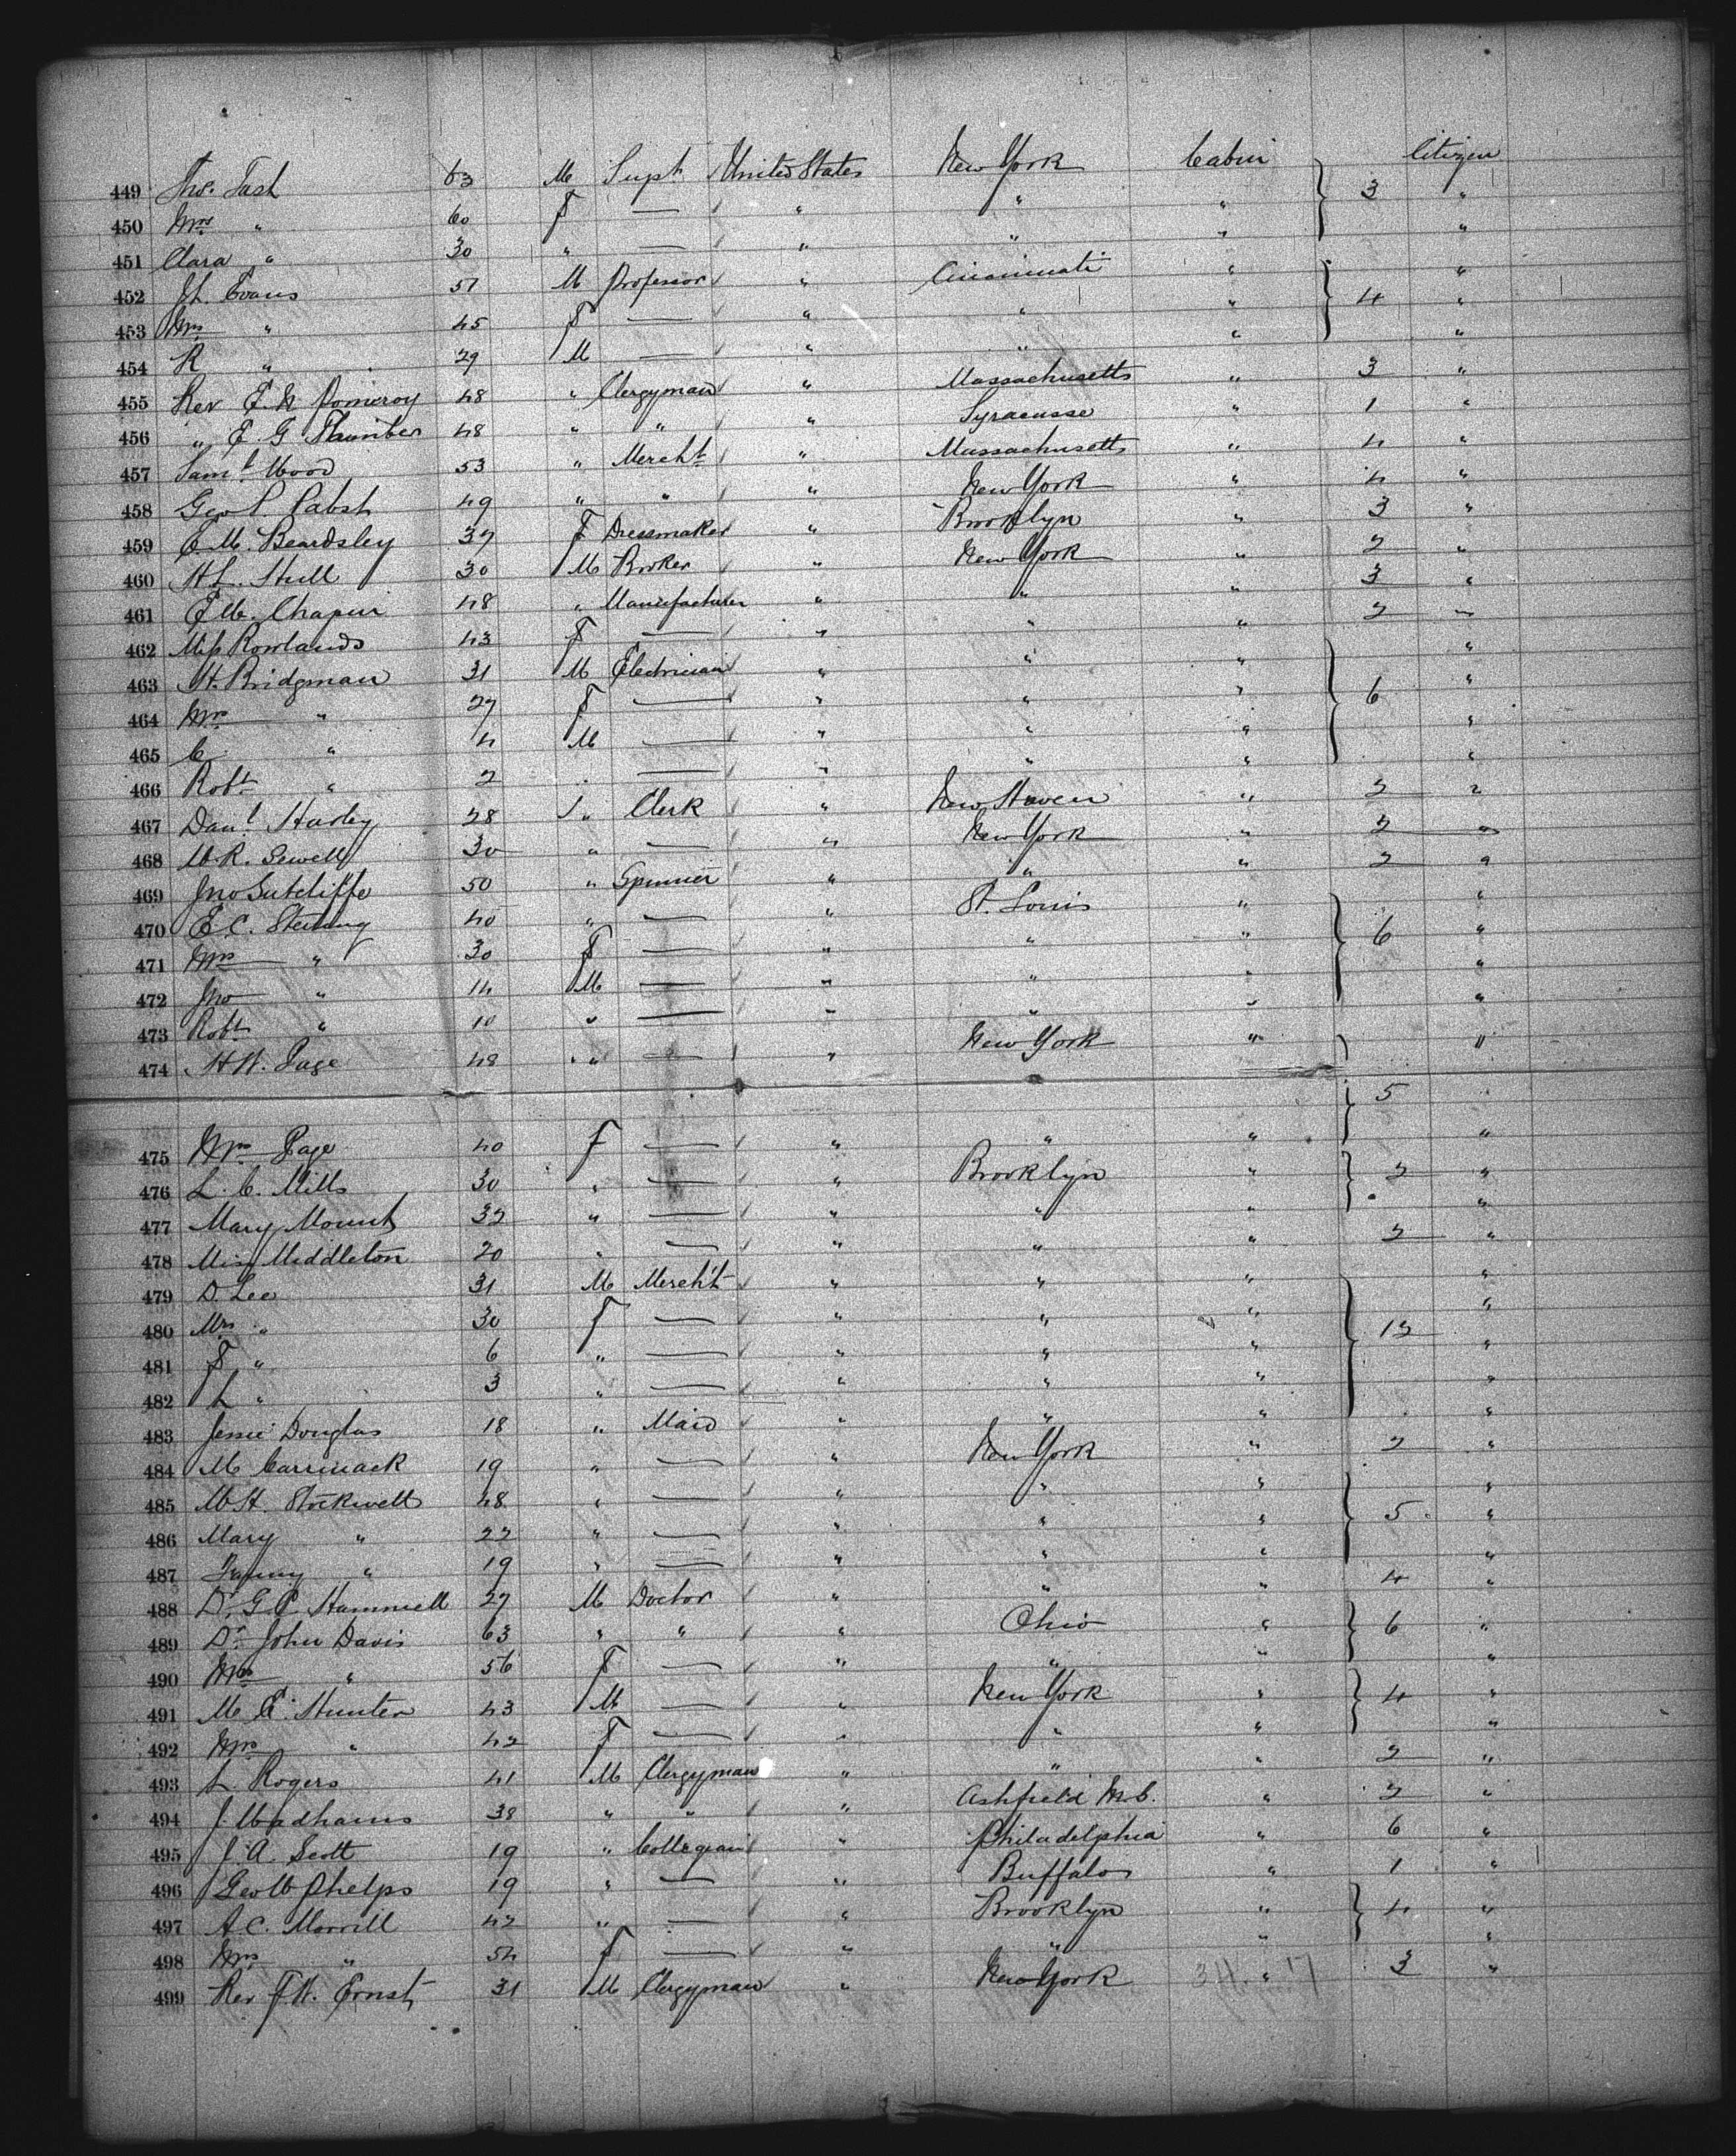 449 Tash 63 M Supt United States New York Cabin 3 Citizen
450 Mrs " 60 F — " " " "
451 Clara " 30 " — " " " "
452 Evans 57 M Professor " Cincinnati " 4 "
453 Mrs " 45 F — " " " "
454 R " 29 M — " " " "
455 Rev Pomeroy 48 " Clergyman " Massachusetts " 3 "
456 " E. G. 48 " " " Syracusse " 1 "
457 Saml Wood 53 " Mercht " Massachusetts " 4 "
458 Pabst 49 " " " New York " 4 "
459 E. M. Beardsley 37 F Dressmaker " Brooklyn " 3 "
460 H. L. Hull 30 M Broker " New York " 2 "
461 E. M. Chapin 48 " Manufacturer " " " 3 "
462 Miss Rowlands 43 F — " " " 2 "
463 H. Bridgman 31 M Electrician " " " 6 "
464 Mrs " 27 F — " " " "
465 C " 4 M — " " " "
466 Robt " 2 " — " " " "
467 Danl Hurley 28 " Clerk " New Haven " 2 "
468 Sewell 30 " — " New York " 2 "
469 Jno Sutcliffe 50 " Spinner " " " 2 "
470 E. C. 40 " — " St. Louis " 6 "
471 Mrs " 30 F — " " " "
472 Jno " 14 M — " " " "
473 Robt " 10 " — " " " "
474 H. W. Page 48 " — " New York " 5 "
475 Mrs Page 40 F — " " " "
476 L. C. Mills 30 " — " Brooklyn " 2 "
477 Mary Mount 32 " — " " " "
478 Miss Middleton 20 " — " " " 2 "
479 D. Lee 31 M Mercht " " " 12 "
480 Mrs " 30 F — " " " "
481 F " 6 " — " " " "
482 L " 3 " — " " " "
483 Jessie Douglas 18 " Maid " " " "
484 M Carmack 19 " — " New York " 2 "
485 M. H. Stockwell 48 " — " " " 5 "
486 Mary " 22 " — " " " "
487 Fanny " 19 " — " " " "
488 Dr. G. P. Hammell 27 M Doctor " " " 4 "
489 Dr John Davis 63 " " " Ohio " 6 "
490 Mrs " 56 F — " " " "
491 M. E. Hunter 43 M — " New York " 4 "
492 Mrs " 42 F — " " " "
493 L. Rogers 41 M Clergyman " " " 2 "
494 J. Wadhams 38 " " " Ashfield " 2 "
495 J. A. Scott 19 " Collegian " Philadelphia " 6 "
496 Geo W Phelps 19 " — " Buffalo " 1 "
497 A. C. Morrill 42 " — " Brooklyn " 4 "
498 Mrs " 54 F — " " " "
499 Rev F. W. Ernst 31 M Clergyman " New York " 3 "